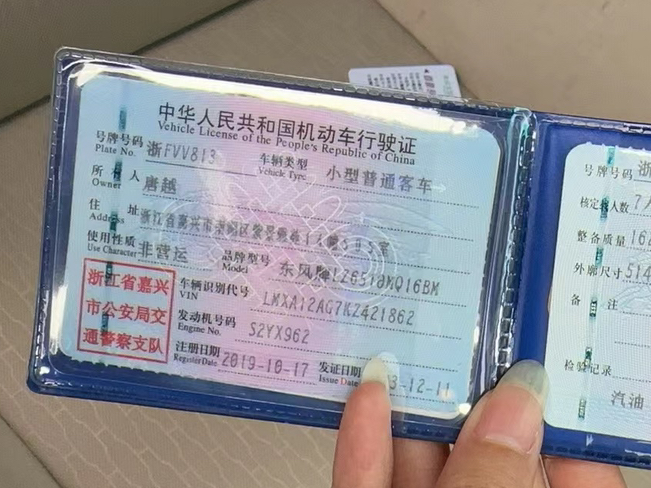 中华人民共和国机动车行驶证
Vehicle License of the People's Republic of China
号牌号码 浙FVV813 车辆类型 小型普通客车
Plate No. Vehicle Type
所有人 唐越
Owner
住址 浙江省嘉兴市
Address
使用性质 非营运 品牌型号 东风牌LZ6518MQ16BM
Use Character Model
浙江省嘉兴
市公安局交
通警察支队
车辆识别代号 LMXA12AG7KZ421862
VIN
发动机号码 S2YX96Z
Engine No.
注册日期 2019-10-17 发证日期 3-12-11
Register Date Issue Date
号牌号码 浙
核定载人数 7人
整备质量 16
外廓尺寸 514
备注
检验记录
汽油